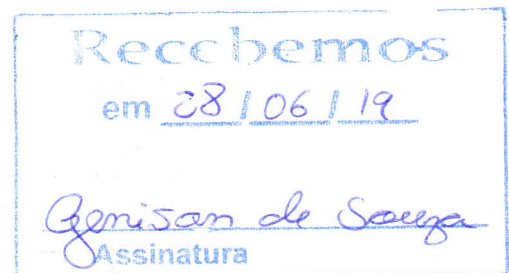 Recebemos
em 28 / 06 / 19
Genison de Souza
Assinatura